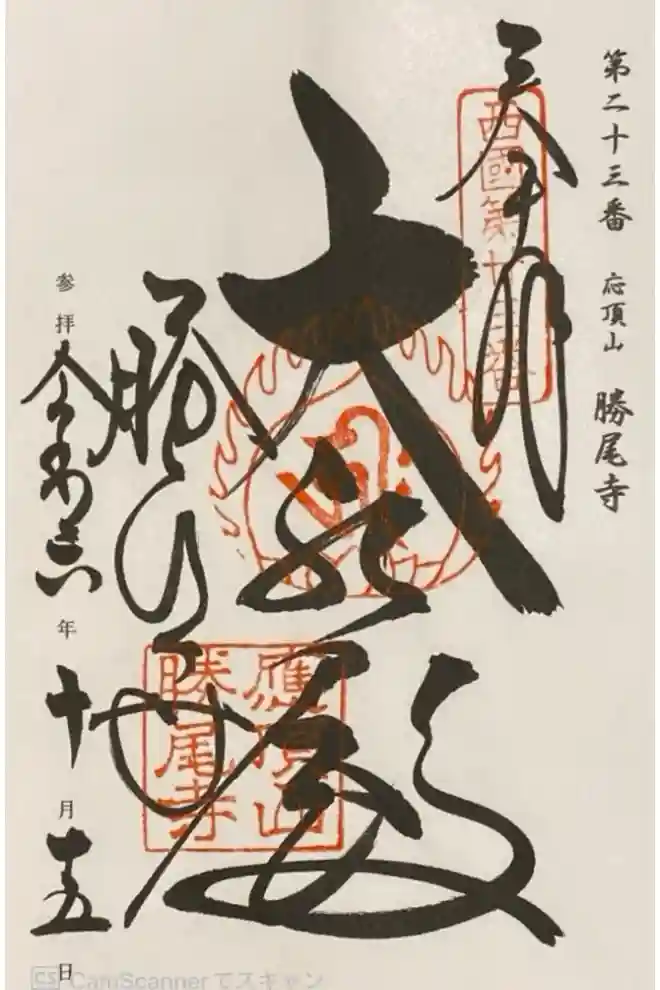 第二十三番 応頂山 勝尾寺
奉拝
西國第廿三番
大悲殿
應頂山
勝尾寺
勝尾寺
参拝 令和六年十月十五日
CS CamScannerでスキャン